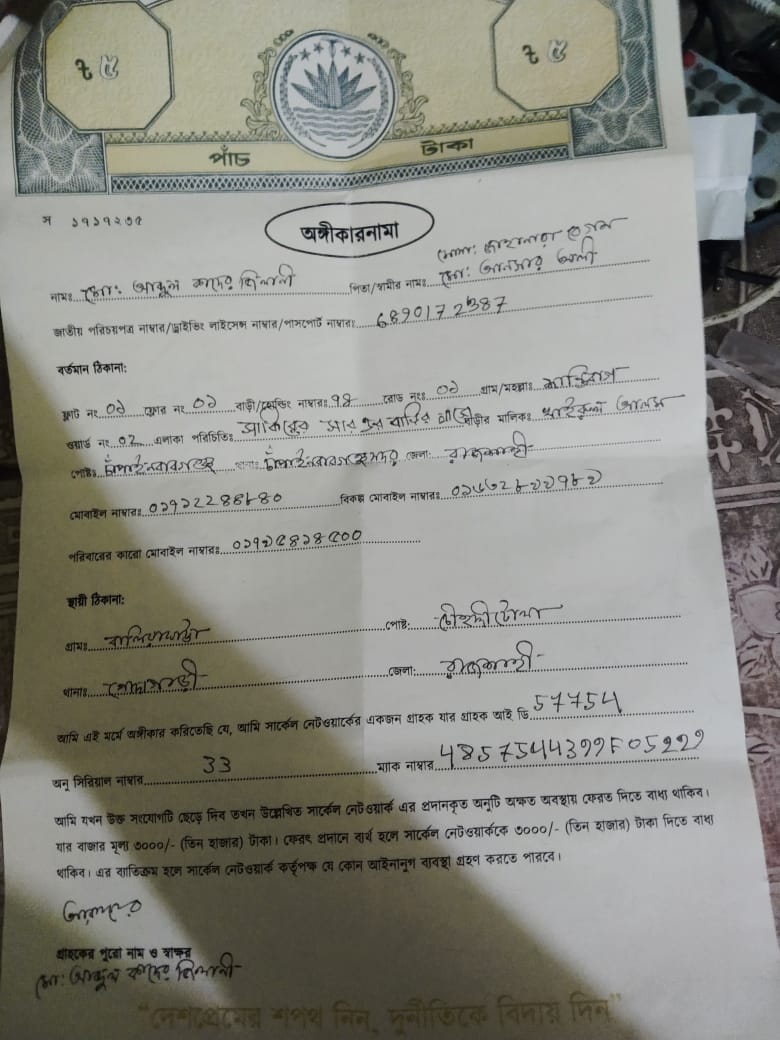 ৳ ৫ ৳ ৫
পাঁচ টাকা
স ১৯১৯২৩৫
অঙ্গীকারনামা
মোসা: জাহানারা বেগম
নামঃ মো: আব্দুল কাদের জিলানী পিতা/স্বামীর নামঃ মো: আনসার আলী
জাতীয় পরিচয়পত্র নাম্বার/ড্রাইভিং লাইসেন্স নাম্বার/পাসপোর্ট নাম্বারঃ 6890172387
বর্তমান ঠিকানা:
ফ্লাট নং ০১ ফ্লোর নং ০১ বাড়ী/হোল্ডিং নাম্বারঃ ৭৪ রোড নংঃ ০১ গ্রাম/মহল্লাঃ
ওয়ার্ড নং ০২ এলাকা পরিচিতিঃ বাড়ীর মালিকঃ আলম
পোষ্টঃ চাঁপাইনবাবগঞ্জ থানাঃ চাঁপাইনবাবগঞ্জ সদর জেলা: রাজশাহী
মোবাইল নাম্বারঃ বিকল্প মোবাইল নাম্বারঃ
পরিবারের কারো মোবাইল নাম্বারঃ
স্থায়ী ঠিকানা:
গ্রামঃ পোষ্ট:
থানাঃ গোদাগাড়ী জেলা: রাজশাহী
আমি এই মর্মে অঙ্গীকার করিতেছি যে, আমি সার্কেল নেটওয়ার্কের একজন গ্রাহক যার গ্রাহক আই ডি 57754
অনু সিরিয়াল নাম্বার 33 ম্যাক নাম্বার
আমি যখন উক্ত সংযোগটি ছেড়ে দিব তখন উল্লেখিত সার্কেল নেটওয়ার্ক এর প্রদানকৃত অনুটি অক্ষত অবস্থায় ফেরত দিতে বাধ্য থাকিব।
যার বাজার মূল্য ৩০০০/- (তিন হাজার) টাকা। ফেরৎ প্রদানে ব্যর্থ হলে সার্কেল নেটওয়ার্ককে ৩০০০/- (তিন হাজার) টাকা দিতে বাধ্য
থাকিব। এর ব্যতিক্রম হলে সার্কেল নেটওয়ার্ক কর্তৃপক্ষ যে কোন আইনানুগ ব্যবস্থা গ্রহণ করতে পারবে।
গ্রাহকের পুরো নাম ও স্বাক্ষর
মো: আব্দুল কাদের জিলানী
"দেশপ্রেমের শপথ নিন, দুর্নীতিকে বিদায় দিন"